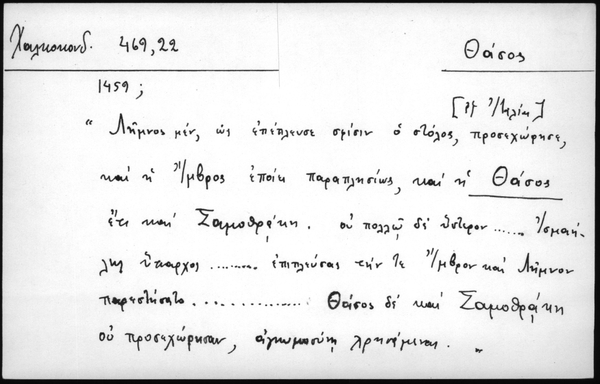 Χαλκοκονδ. 469,22
Θάσος
1459 ;
" Λῆμνος μέν, ὡς ἐπέπλευσε σφίσιν ὁ στόλος, προσεχώρησε,
καὶ ἡ Ἴμβρος ἐποίει παραπλησίως, καὶ ἡ Θάσος
ἔτι καὶ Σαμοθρᾴκη. οὐ πολλῷ δὲ ὕστερον ...... Ἰσμαή-
λης ὕπαρχος ......... ἐπιπλεύσας τήν τε Ἴμβρον καὶ Λῆμνον
παρεστήσατο .............. Θάσος δὲ καὶ Σαμοθρᾴκη
οὐ προσεχώρησαν, ἀγνωμοσύνῃ χρησάμεναι. "